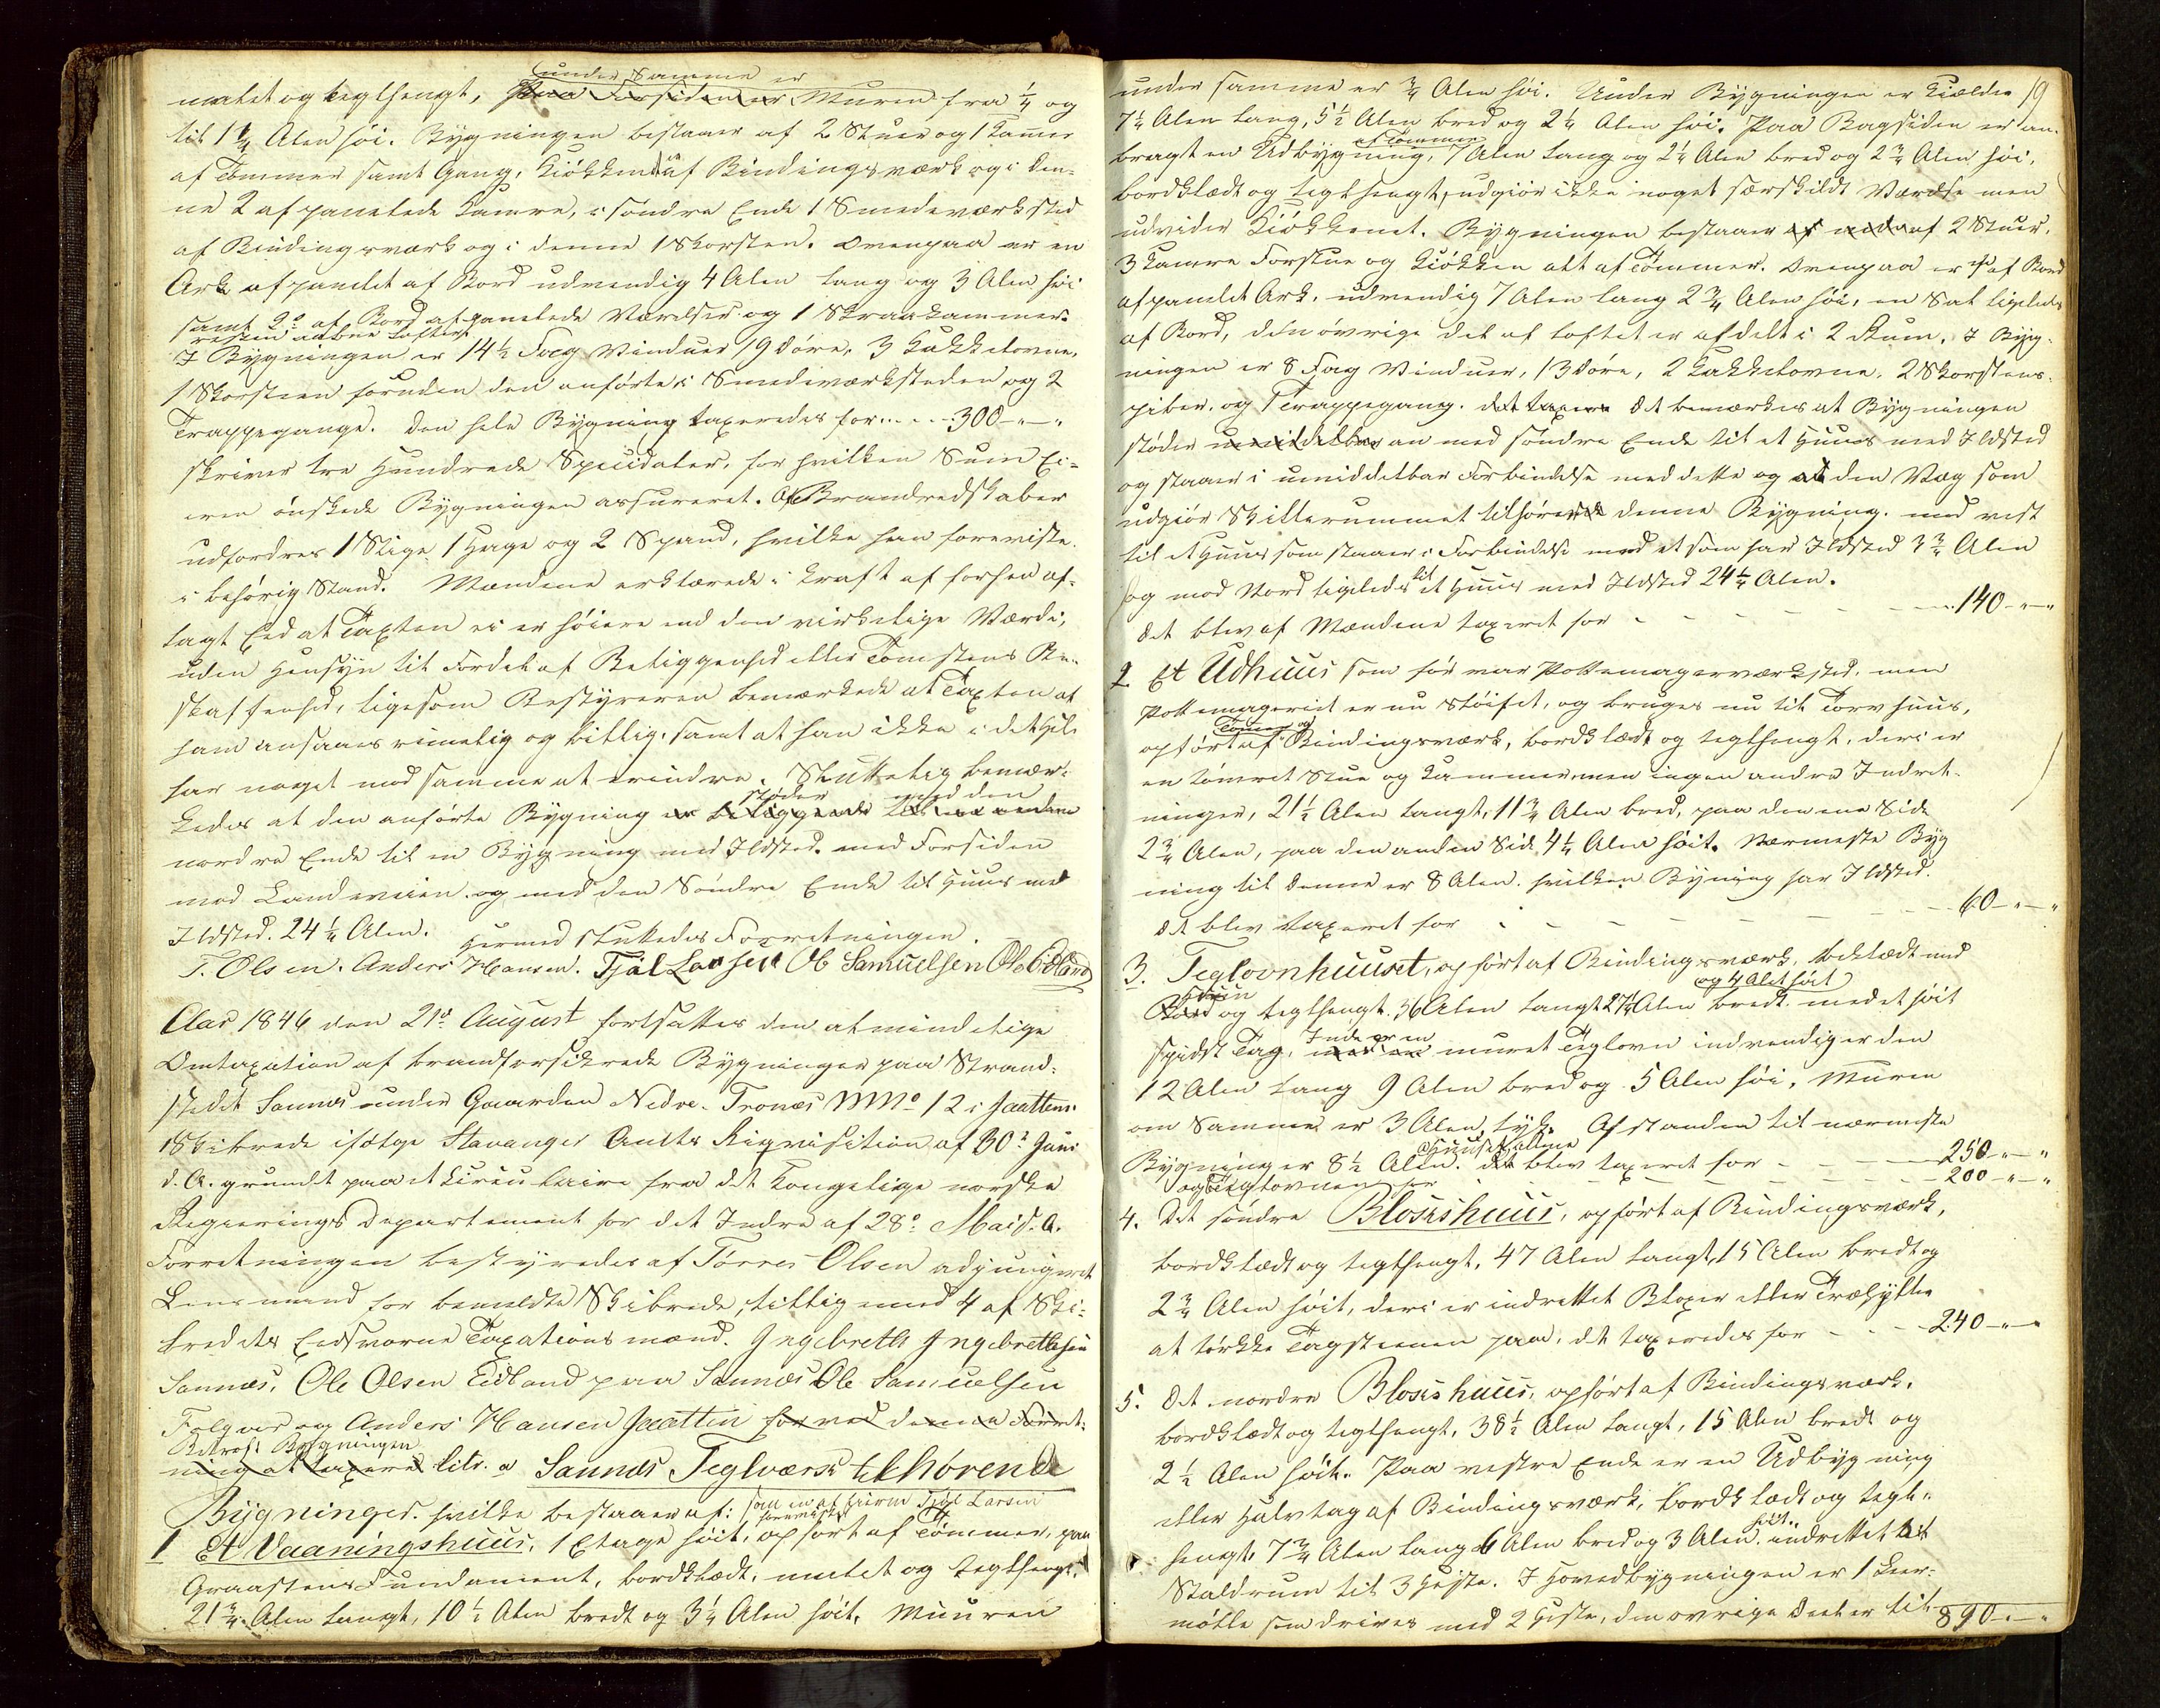 under Samme er
malet og teglhengt, paa Forsiden er Muren fra 1/4 og
til 1 1/4 Alen høi. Bygningen bestaaer af 2 Stuer og 1 Kamer
af Tømmer samt Gang, Kiøkken af Bindingsværk og i den-
ne 2 afpanelede Kamre, i søndre Ende 1 Smedeværksted
af Bindingsværk og i denne 1 Skorsten. Ovenpaa er en
Ark afpanelet af Bord udvendig 4 Alen lang og 3 Alen høi
samt 2de af Bord afpanelede Værelser og 1 Skraakammer.
resten aabne Lofter
I Bygningen er 14 1/2 Fag Vinduer 19 Døre, 3 Kakkelovne,
1 Skorsteen foruden den anførte i Smedeværksteden og 2
Trappegange. Den hele Bygning taxeredes for .... 300 - " - "
skriver tre Hundrede Speciedaler, for hvilken Sum Ei-
eren ønskede Bygningen assureret. Af Brandredskaber
udfordres 1 Stige 1 Hage og 2 Spand, hvilke han foreviste
i behørig Stand. Mændene erklærede i Kraft af forhen af-
lagt Eed at Taxten ei er høiere end den virkelige Værdi,
uden Hensyn til Fordel af Beliggenhed eller Tomtens Be-
skaffenhed, ligesom Bestyreren bemærkede at Taxten af
ham ansaaes rimelig og billig, samt at han ikke i det Hele
har noget mod samme at erindre. Sluttelig bemær-
støder med den
kedes at den anførte Bygning er beliggende
nordre Ende til en Bygning med Ildsted. med Forsiden
mod Landeveien og med den Søndre Ende til Huus med
Ildsted. 24 1/4 Alen. Hermed sluttedes Forretningen.
T. Olsen. Anders Hansen. Tjøl Larsen Ole Samuelsen Ole Eidland
Aar 1846 den 21de August fortsattes den almindelige
Omtaxation af brandforsikrede Bygninger paa Strand-
stedet Sannæs under Gaarden Nedre-Tronæs MNo 12 i Jaattens
Skibrede ifølge Stavanger Amts Riqvisition af 30te Juni
d. A. grundet paa et Circulaire fra det Kongelige norske
Regjerings Departement for det Indre af 28de Mai d. A.
Forretningen bestyredes af Tørres Olsen adjungeret
Lensmand for bemeldte Skibrede, tillig med 4 af Ski-
bredets Eedsvorne Taxationsmænd. Ingebreth Ingebrethsen
Sannæs, Ole Olsen Eidland paa Sannæs Ole Samuelsen
Folgerø og Anders Hansen Jaatten for ved denne Forret-
Betræf. Bygningen
ning at taxere litr. a Sannæs Teglværk tilhørende
Bygninger. hvilke bestaaer af:
1 Et Vaaningshuus, 1 Etage høit, opført af Tømmer, paa
Graasteens Fundament, bordklædt, malet og teglhengt,
21 3/4 Alen langt, 10 1/2 Alen bredt og 3 1/4 Alen høit, Muuren
19
under samme er 3/4 Alen høi. Under Bygningen er Kielder
7 1/2 Alen lang, 5 1/2 Alen bred og 2 1/4 Alen høi. Paa Bagsiden er an-
af Tømmer
bragt en Udbygning, 7 Alen lang og 2 1/4 Alen bred og 2 3/4 Alen høi,
bordklædt og teglhengt, udgiør ikke noget særskildt Værdie men
udvider Kiøkkenet. Bygningen bestaaer af 2 Stuer,
3 Kamre Forstue og Kiøkken alt af Tømmer. Ovenpaa er af Bord
afpanelet Ark, udvendig 7 Alen lang 2 3/4 Alen høi, en Sal ligeledes
af Bord, den øvrige del af Loftet er afdelt i 2 Rum. I Byg-
ningen er 8 Fag Vinduer, 13 Døre, 2 Kakkelovne, 2 Skorsteens-
piber, og 1 Trappegang. det taxere Det bemærkes at Bygningen
støder umiddelbar an med søndre Ende til et Huus med Ildsted
og staaer i umiddelbar Forbindelse med dette og at den Væg som
udgiør Skillerummet tilhører denne Bygning. mod vest
til et Huus som staaer i Forbindelse med et som har Ildsted 3 3/4 Alen
og mod Nord ligeledes til et Huus med Ildsted 24 1/4 Alen.
Det blev af Mændene taxeret for - - - - - 140 - " - "
2 Et Udhuus som før var Pottemagerværksted, men
Pottemageriet er nu sløifet, og bruges nu til Torvhuus,
Tømmer og
opført af Bindingsværk, bordklædt og teglhengt, deri er
en tømret Stue og Kammer men ingen andre Indret-
ninger, 21 1/2 Alen langt, 11 3/4 Alen bred, paa den ene Side
2 3/4 Alen, paa den anden Side 4 1/4 Alen høit. Nærmeste Byg
ning til denne er 8 Alen. hvilken Bygning har Ildsted.
Det blev taxeret for - - - - - - 60 - " - "
3. Teglovnhuuset, opført af Bindingsværk, beklædt med
og 4 Alen høit
Bord og teglhengt. 36 Alen langt 27 1/4 Alen bredt med et høit
Inde er en
spidst Tag, muret Teglovn indvendig er den
12 Alen lang 9 Alen bred og 5 Alen høi, Muren
om Samme er 3 Alen tyk. Afstanden til nærmeste
Huuset allene
Bygning er 8 1/2 Alen. det blev taxeret for - - - 250 - " - "
og Teglovnen for - - - - - - 200 - " - "
4. Det søndre Blosishuus, opført af Bindingsværk,
bordklædt og teglhengt, 47 Alen langt, 15 Alen bredt og
2 3/4 Alen høit, deri er indrettet Bloxer eller Træhylder
at tørkke Tagsteenen paa, det taxeredes for - - - 240 - " - "
5. Det nordre Blosishuus, opført af Bindingsværk,
bordklædt og teglhengt, 38 1/2 Alen langt, 15 Alen bredt og
2 1/2 Alen høit. Paa vestre Ende er en Udbygning
eller Halvtag af Bindingsværk, bordklædt og tegl-
hengt 7 3/4 Alen lang 6 Alen bred og 3 Alen høit. indrettet til
Staldrum til 3 Heste. I Hovedbygningen er 1 Leer-
mølle som drives med 2 Heste, den øvrige Deel er til
890 - " - "